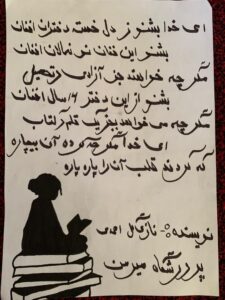 ای خدا بشنو ز دل خسته دختران افغان
بشنو این فغان نو نهالان افغان
مگر چه خواهند جز آزادی و تحصیل
بشنو از این دختر ۱۶ سال افغان
مگر چه می‌خواهد بجز یک قلم و کتاب
ای خدا مگر چه کرده آن بیچاره
که کردند قلب آن را پاره پاره
نویسنده: نازگل احمدی
پرورشگاه میرمن